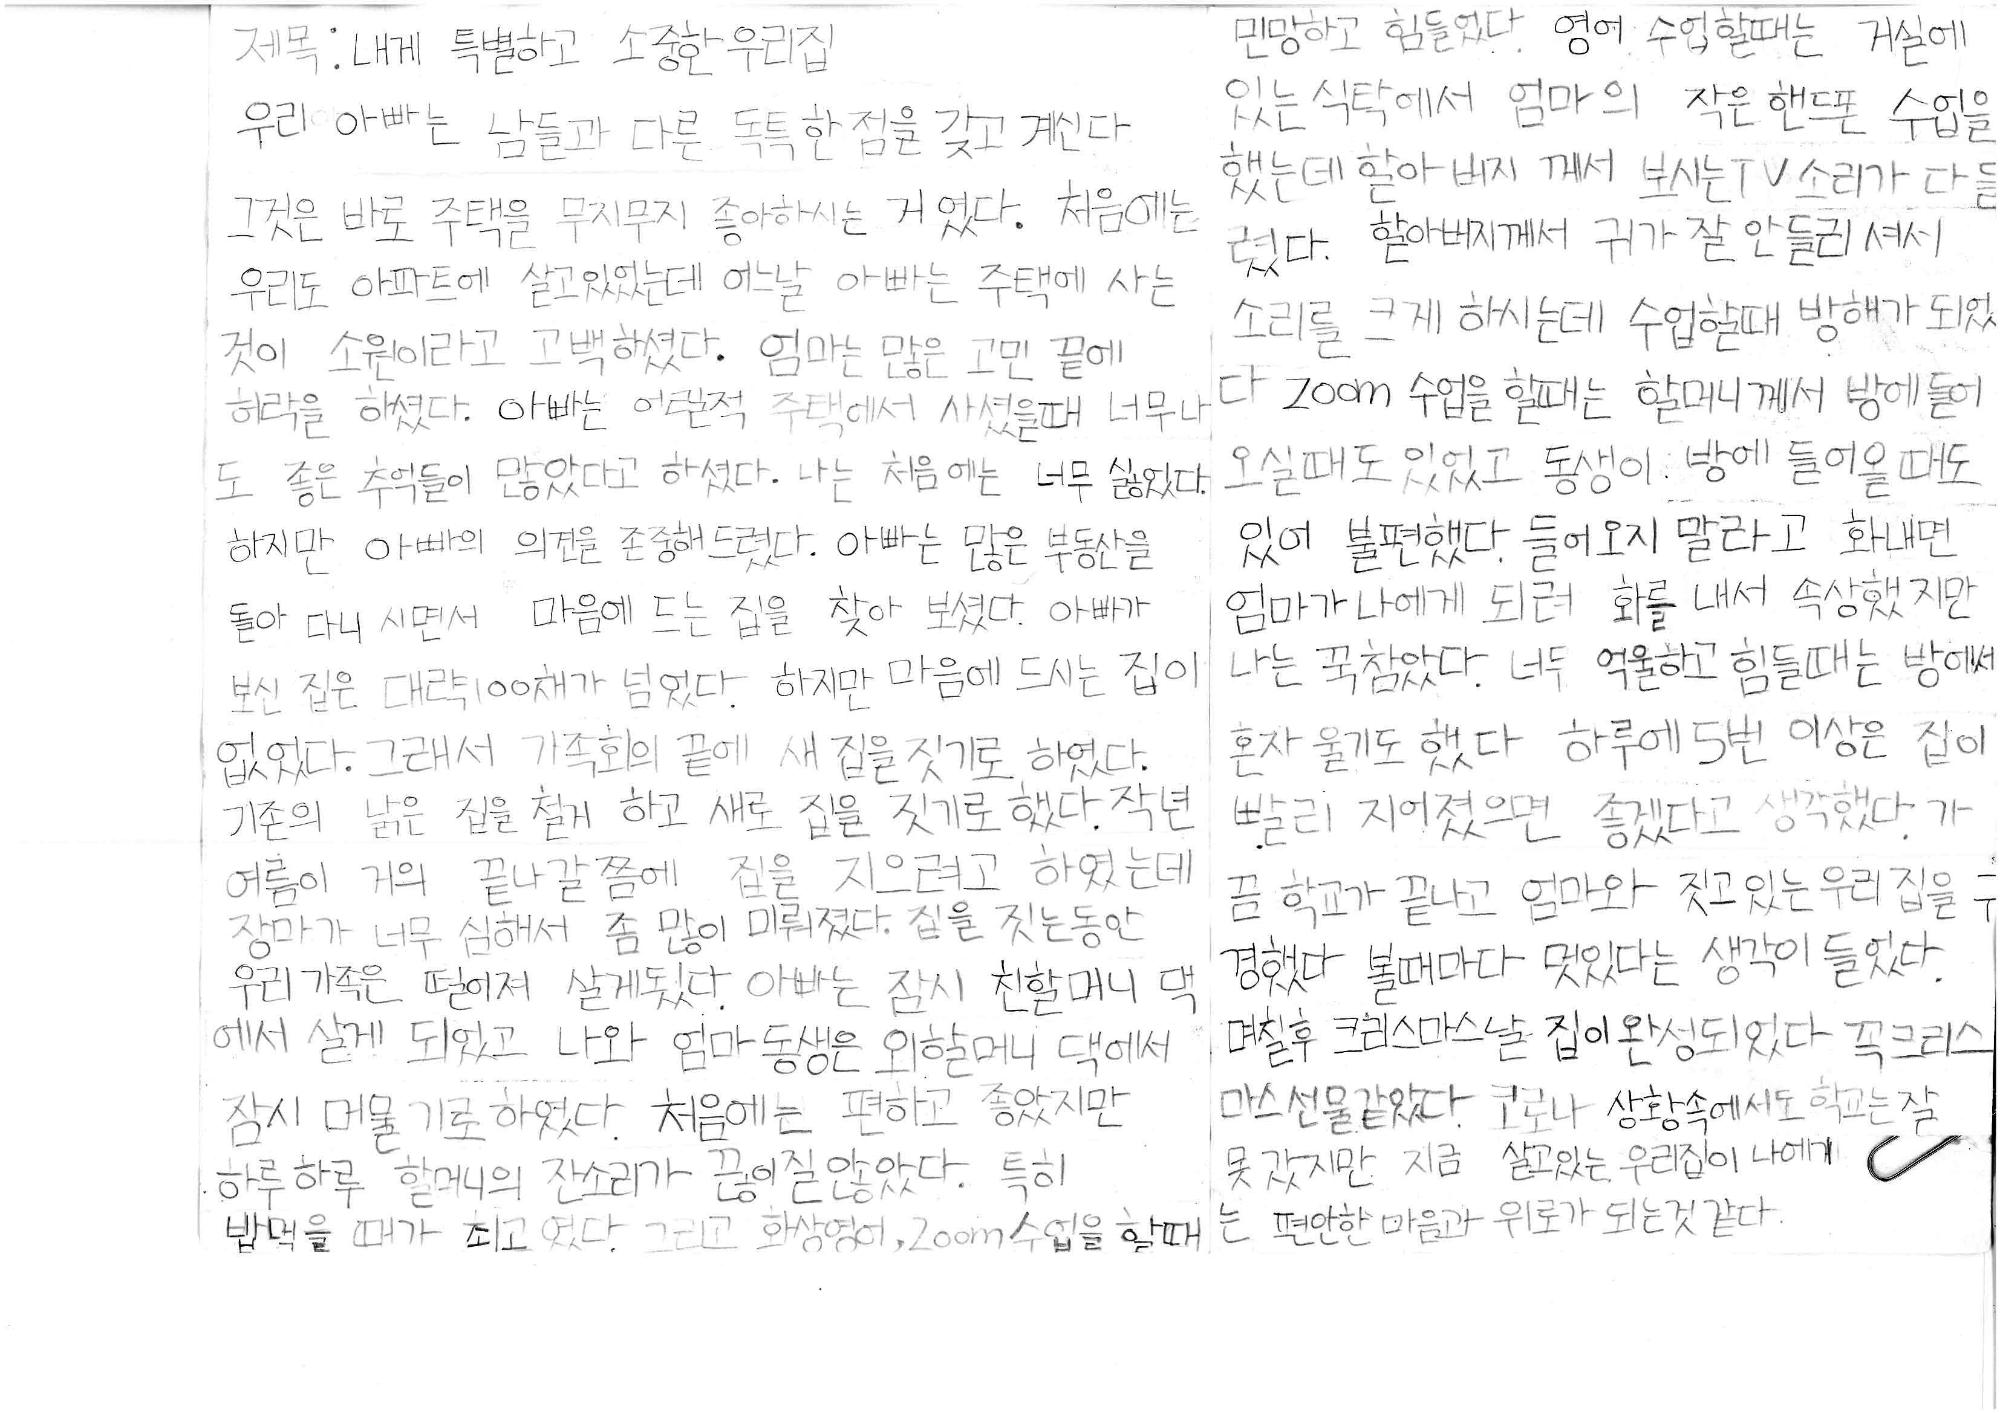 제목: 내게 특별하고 소중한 우리집
우리 아빠는 남들과 다른 독특한 점을 갖고 계신다
그것은 바로 주택을 무지무지 좋아하시는 거 였다. 처음에는
우리도 아파트에 살고있었는데 어느날 아빠는 주택에 사는
것이 소원이라고 고백하셨다. 엄마는 많은 고민 끝에
허락을 하셨다. 아빠는 어릴적 주택에서 사셨을때 너무나
도 좋은 추억들이 많았다고 하셨다. 나는 처음에는 너무 싫었다.
하지만 아빠의 의견을 존중해드렸다. 아빠는 많은 부동산을
돌아 다니 시면서 마음에 드는 집을 찾아 보셨다. 아빠가
보신 집은 대략 100채가 넘었다. 하지만 마음에 드시는 집이
없었다. 그래서 가족회의 끝에 새 집을 짓기로 하였다.
기존의 낡은 집을 철거 하고 새로 집을 짓기로 했다. 작년
여름이 거의 끝나갈 쯤에 집을 지으려고 하였는데
장마가 너무 심해서 좀 많이 미뤄졌다. 집을 짓는동안
우리 가족은 떨어져 살게됬다. 아빠는 잠시 친할머니 댁
에서 살게 되었고 나와 엄마 동생은 외할머니 댁에서
잠시 머물기로 하였다. 처음에는 편하고 좋았지만
하루하루 할머니의 잔소리가 끊이질 않았다. 특히
밥먹을 때가 최고였다. 그리고 화상영어, Zoom 수업을 할때
민망하고 힘들었다. 영어 수업할때는 거실에
있는 식탁에서 엄마의 작은 핸드폰 수업을
했는데 할아버지 께서 보시는 TV 소리가 다 들
렸다. 할아버지께서 귀가 잘 안들리셔서
소리를 크게 하시는데 수업할때 방해가 되었
다 zoom 수업을 할때는 할머니께서 방에 들어
오실때도 있었고 동생이 방에 들어올 때도
있어 불편했다. 들어오지 말라고 화내면
엄마가 나에게 되려 화를 내서 속상했지만
나는 꾹참았다. 너무 억울하고 힘들때는 방에서
혼자 울기도 했다 하루에 5번 이상은 집이
빨리 지어졌으면 좋겠다고 생각했다. 가
끔 학교가 끝나고 엄마와 짓고있는 우리 집을 구
경했다 볼때마다 멋있다는 생각이 들었다.
며칠후 크리스마스날 집이 완성되었다 꼭 크리스
마스 선물같았다. 코로나 상황속에서도 학교는 잘
못 갔지만 지금 살고있는 우리집이 나에게
는 편안한 마음과 위로가 되는것 같다.